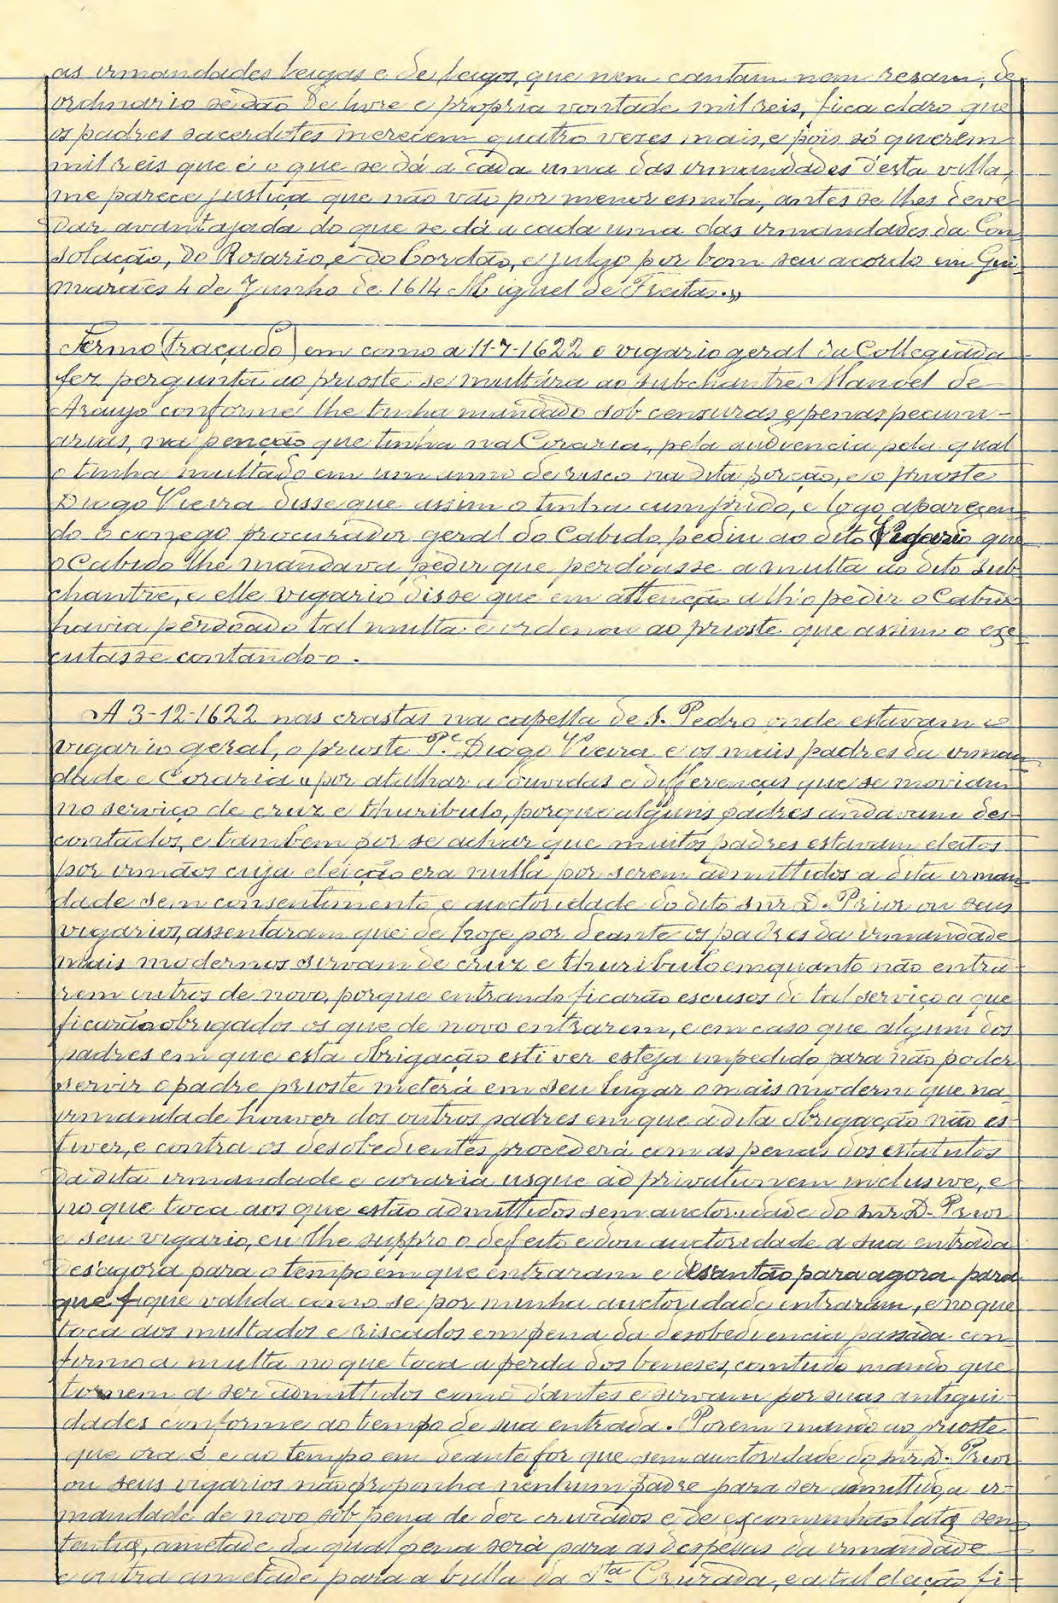 as irmandades leigas e de leigos, que nem cantam nem resam, de
ordinario se dão de livre e propria vontade mil reis, fica claro que
os padres sacerdotes merecem quatro vezes mais, e pois só querem
mil reis que é o que se dá a cada uma das irmandades d'esta villa,
me parece justiça que não vão por menor esmola, antes se lhes deve
dar avantajada do que se dá a cada uma das irmandades da Con
solação, do Rosario, e do Cordão, e julgo por bom seu acordo em Gui-
marães 4 de Junho de 1614 Miguel de Freitas.»
Termo (traçado) em como a 11-7-1622 o vigario geral da Collegiada
fez pergunta ao prioste se multára ao subchantre Manoel de
Araujo conforme lhe tinha mandado sob censuras e penas pecuni-
arias, na penção que tinha na Coraria, pela audiencia pela qual
o tinha multado em um anno de risco na dita porção, e o prioste
Diogo Vieira disse que assim o tinha cumprido, e logo apareçen
do o conego procurador geral do Cabido, pediu ao dito Vigario que
o Cabido lhe mandava pedir que perdoasse a multa ao dito sub
chantre, e elle vigario disse que em attenção a lh'o pedir o Cabido
havia perdoado tal multa e ordenou ao prioste que assim o exe-
cutasse contando-o.
A 3-12-1622 nas crastas na capella de S. Pedro onde estavam o
vigario geral, o prioste P.e Diogo Vieira e os mais padres da irman
dade e Coraria «por atalhar a duvidas e differenças que se moviam
no serviço de cruz e thuribulo, porque alguns padres andavam des-
contados, e tambem por se achar que muitos padres estavam eleitos
por irmãos cuja eleição era nulla por serem admittidos a dita irman-
dade sem consentimento e auctoridade do dito snr D. Prior ou seus
vigarios, assentaram que de hoje por deante os padres da irmandade
mais modernos sirvam de cruz e thuribulo emquanto não entra-
rem outros de novo, porque entrando ficarão escusos do tal serviço a que
ficarão obrigados os que de novo entrarem, e em caso que algum dos
padres em que esta obrigação estiver esteja impedido para não poder
servir o padre prioste meterá em seu lugar o mais moderno que na
irmandade houver dos outros padres em que a dita obrigação não es-
tiver, e contra os desobedientes procederá com as penas dos estatutos
da dita irmandade e coraria usque ad privationem inclusive, e
no que toca aos que estão admittidos sem auctoridade do snr D. Prior
e seu vigario, eu lhe suppro o defeito e dou auctoridade a sua entrada
des'agora para o tempo em que entraram e desantão para agora para
que fique valida como se por minha auctoridade entraram, e no que
toca aos multados e riscados em pena da desobediencia passada con-
firmo a multa no que toca a perda dos beneses, comtudo mando que
tornem a ser admittidos como d'antes e sirvam por suas antigui-
dades conforme ao tempo de sua entrada. Porem mando ao prioste
que ora é e ao tempo em deante for que sem auctoridade do snr D. Prior
ou seus vigarios não proponha nenhum padre para ser admittido a ir-
mandade de novo sob pena de dez cruzados e de excomunhão latæ sen-
tentiæ, ametade da qual pena será para as despezas da irmandade
e outra ametade para a bulla da S.ta Cruzada, e a tal eleição fi-